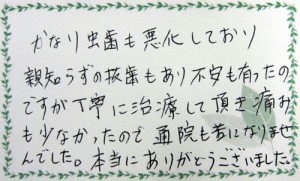 かなり虫歯も悪化しており
親知らずの抜歯もあり不安も有ったの
ですが丁寧に治療して頂き痛み
も少なかったので通院も苦になりませ
んでした。本当にありがとうございました。